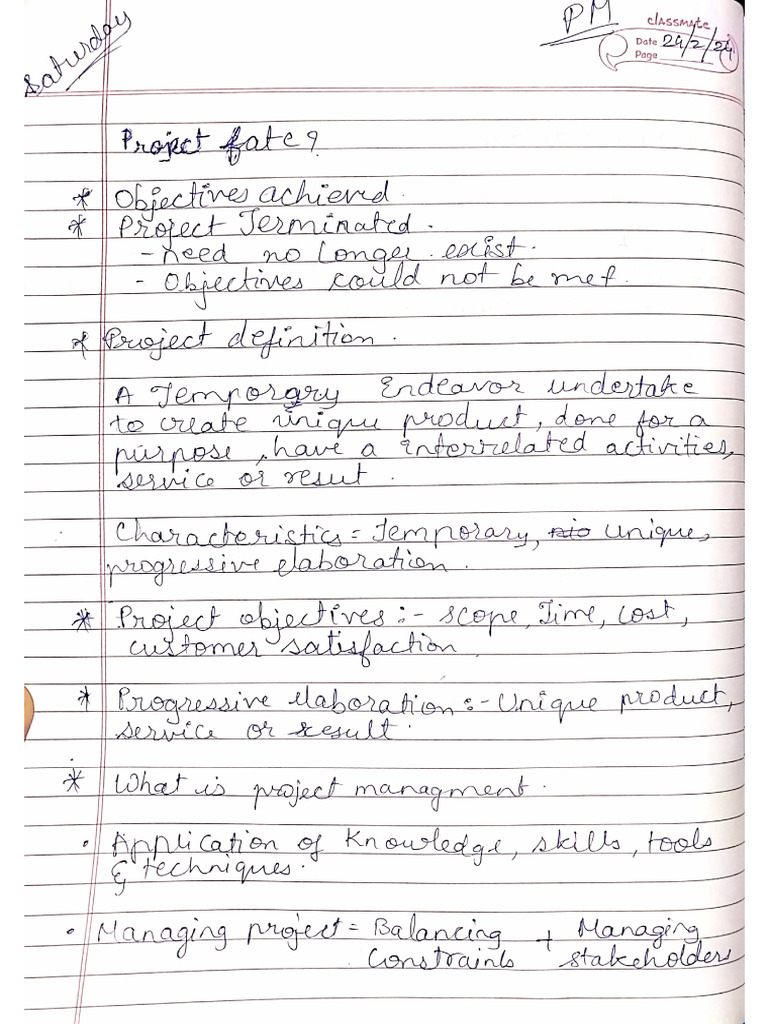 Saturday
PM
classmate
Date 24/2/24
Page
Project fate?
* Objectives achieved.
* Project Terminated.
- need no longer exist.
- Objectives could not be met.
* Project definition.
A Temporary Endeavor undertake
to create unique product, done for a
purpose, have a interrelated activities,
service or result.
Characteristics = Temporary, Unique,
progressive elaboration.
* Project objectives :- scope, Time, cost,
customer satisfaction
* Progressive elaboration :- Unique product,
service or result.
* What is project managment.
• Application of Knowledge, skills, tools
& techniques.
• Managing project = Balancing + Managing
Constraints stakeholders